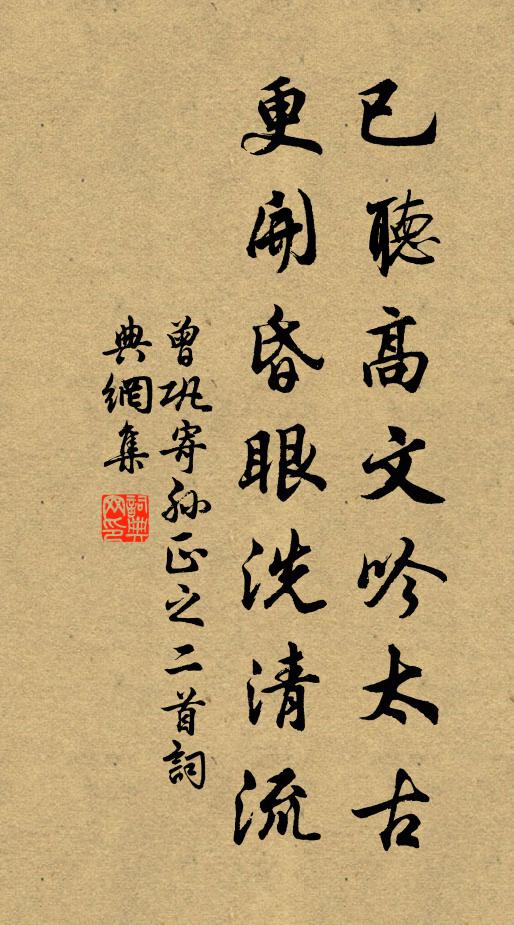 已聽高文吟太古
更開昏眼洗清流
曾巩寄孙正之二首詞
典網集
詞典網印